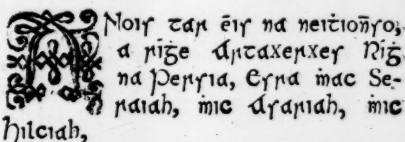 ANois tar ēis na neiṫionṡo,
a riġe Artaxerxes Riġ
na Persia, Esra ṁac Se-
raiah, ṁic Asariah, ṁic
Hilciah,